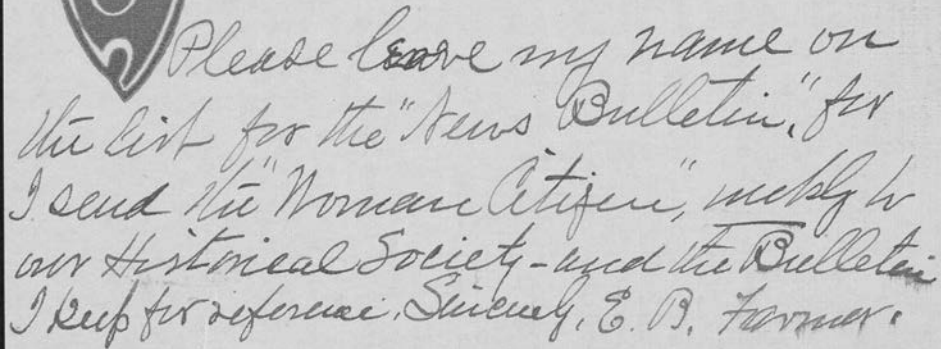 Please leave my name on
the list for the "News Bulletin", for
I send the "Woman Citizen", weekly to
our Historical Society - and the Bulletin
I keep for reference. Sincerely, E. B. Farmer.